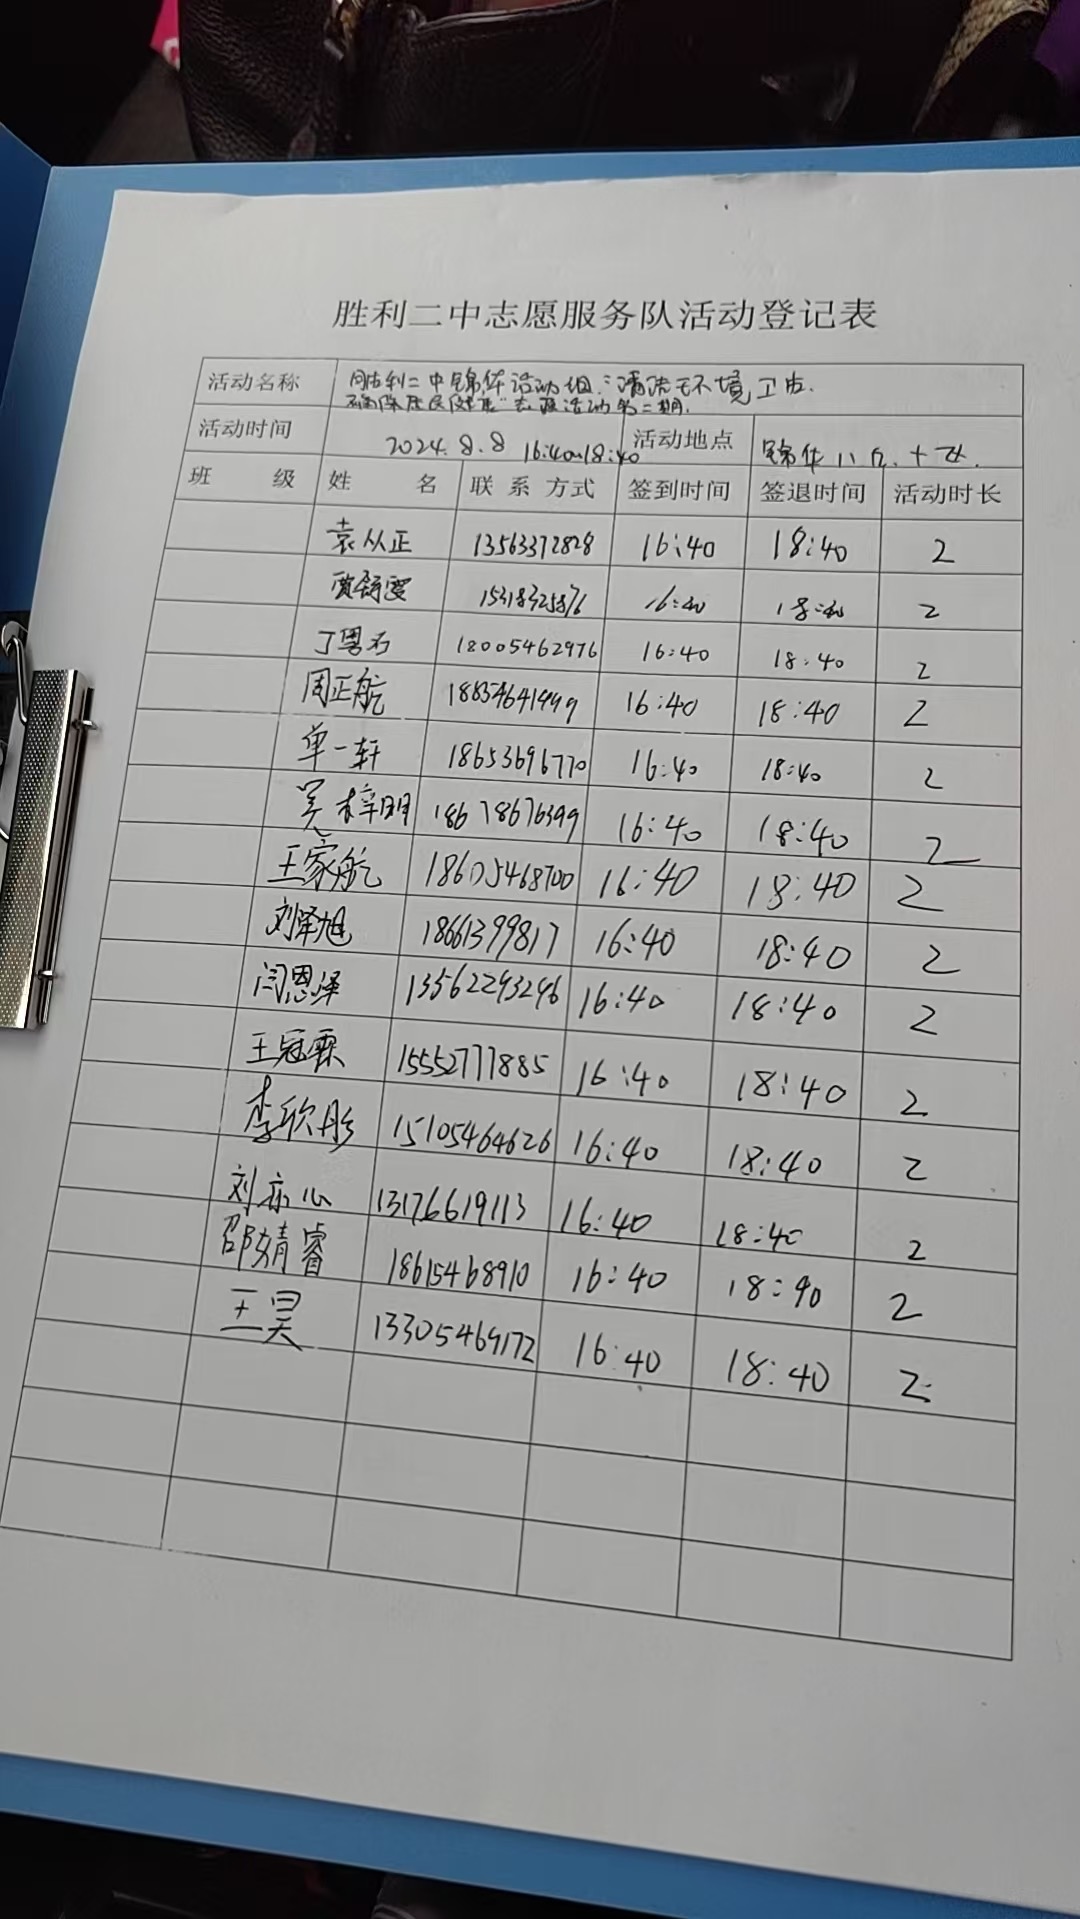 胜利二中志愿服务队活动登记表
活动名称 胜利二中锦华活动组:"清洁环境卫生.
确保居民健康"志愿活动第二期.
活动时间 2024.8.8 16:40~18:40 活动地点 锦华八区、十区.
班 级 姓 名 联系方式 签到时间 签退时间 活动时长
袁从正 13563372828 16:40 18:40 2
贾舒雯 15318325876 16:40 18:40 2
丁思石 18005462976 16:40 18:40 2
周正航 18854641999 16:40 18:40 2
单一轩 18653696770 16:40 18:40 2
吴梓明 18678676399 16:40 18:40 2
王家航 18605468700 16:40 18:40 2
刘泽旭 18661399817 16:40 18:40 2
闫恩泽 13562293296 16:40 18:40 2
王冠霖 15552777885 16:40 18:40 2
李欣彤 15105464626 16:40 18:40 2
刘亦心 13176619113 16:40 18:40 2
邵婧睿 18615468910 16:40 18:90 2
王昊 13305469172 16:40 18:40 2